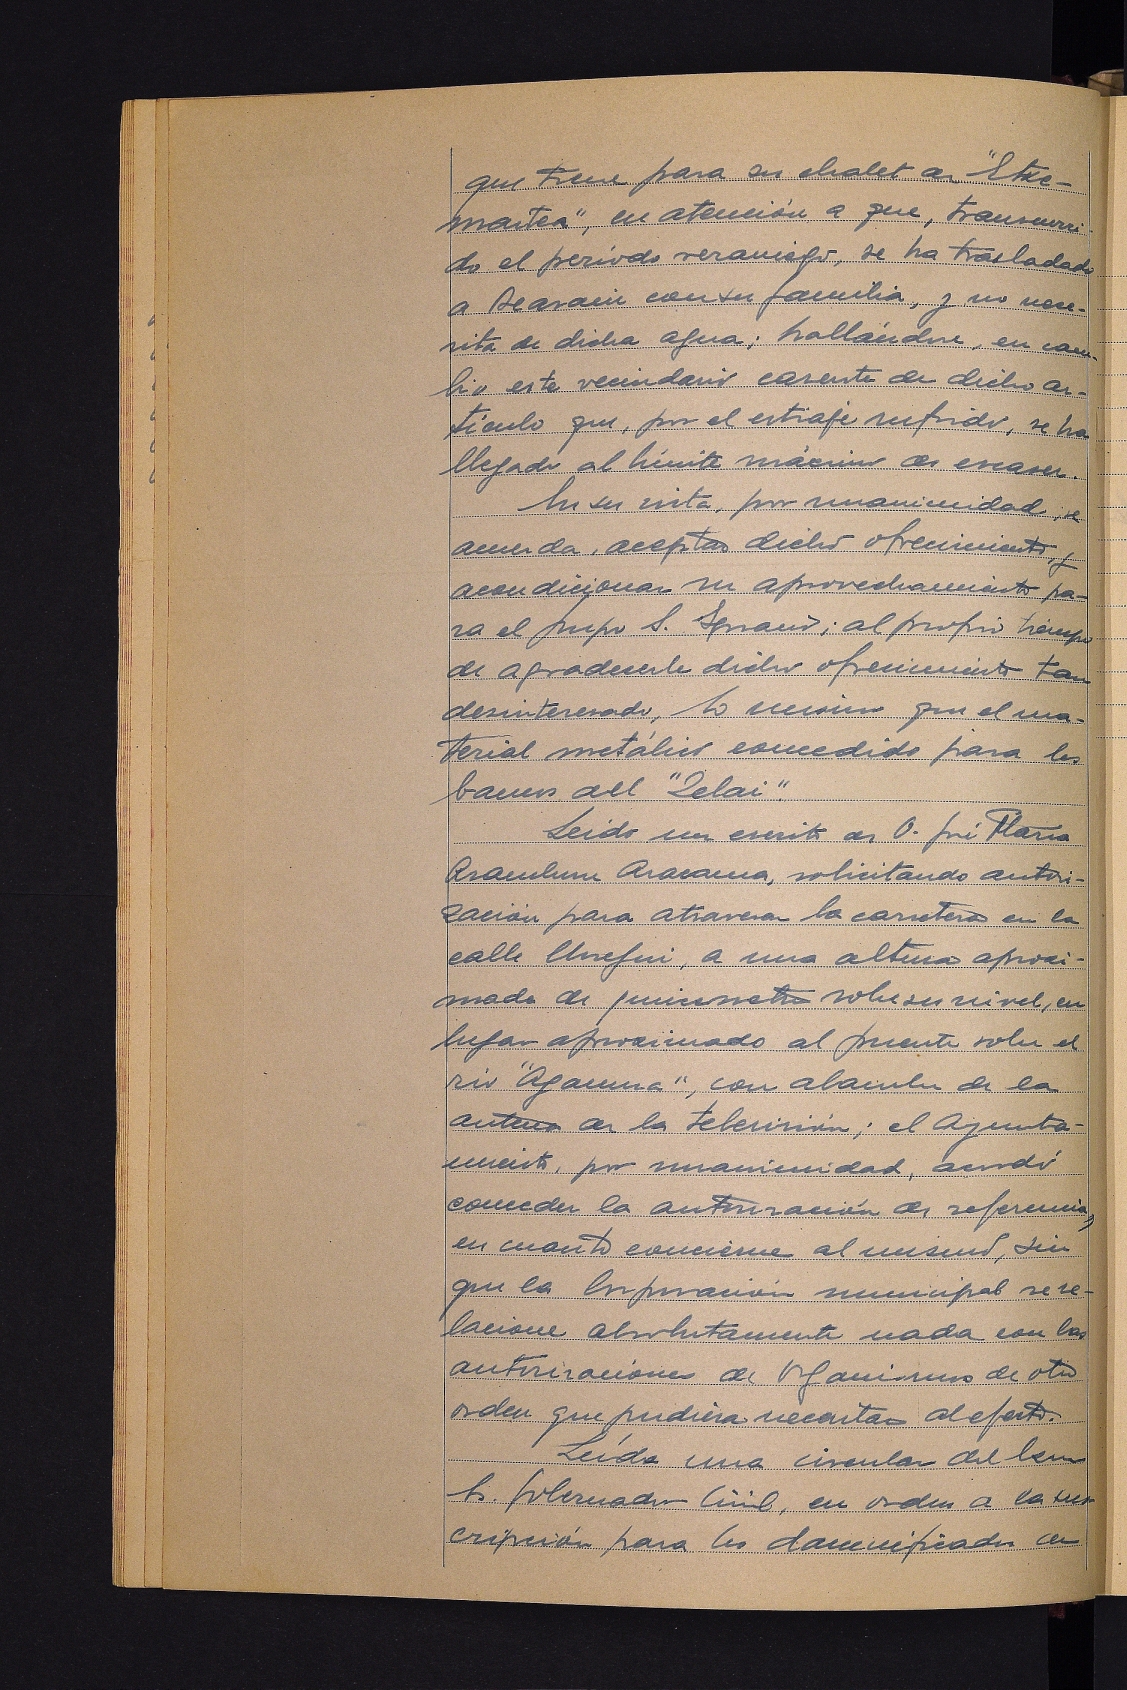 que tiene para su chalet de "Etxe-
maitea", en atención a que, transcurri-
do el período veraniego, se ha trasladado
a Beasain con su familia, y no nece-
sita de dicha agua; hallándose, en cam-
bio este vecindario carente de dicho ar-
tículo que, por el estiaje sufrido, se ha
llegado al límite máximo de escasez.
En su vista, por unanimidad, se
acuerda, aceptar dicho ofrecimiento, y
acondicionar su aprovechamiento pa-
ra el grupo S. Ignacio; al propio tiempo
de agradecerle dicho ofrecimiento tan
desinteresado, lo mismo que el ma-
terial metálico concedido para los
bancos del "Zelai".
Leído un escrito de D. José María
Aramburu Aracama, solicitando autori-
zación para atravesar la carretera en la
calle Urregui, a una altura aproxi-
mada de sobre su nivel, en
lugar aproximado al puente sobre el
río "Agaunza", con alambre de la
antena de la televisión; el Ayunta-
miento, por unanimidad, acordó
conceder la autorización de referencia,
en cuanto concierne al mismo, sin
que la Corporación municipal se re-
lacione absolutamente nada con las
autorizaciones de Organismos de otro
orden que pudiera necesitar al efecto.
Leída una circular del Excmo
Sr. Gobernador Civil, en orden a la sus-
cripción para los damnificados de